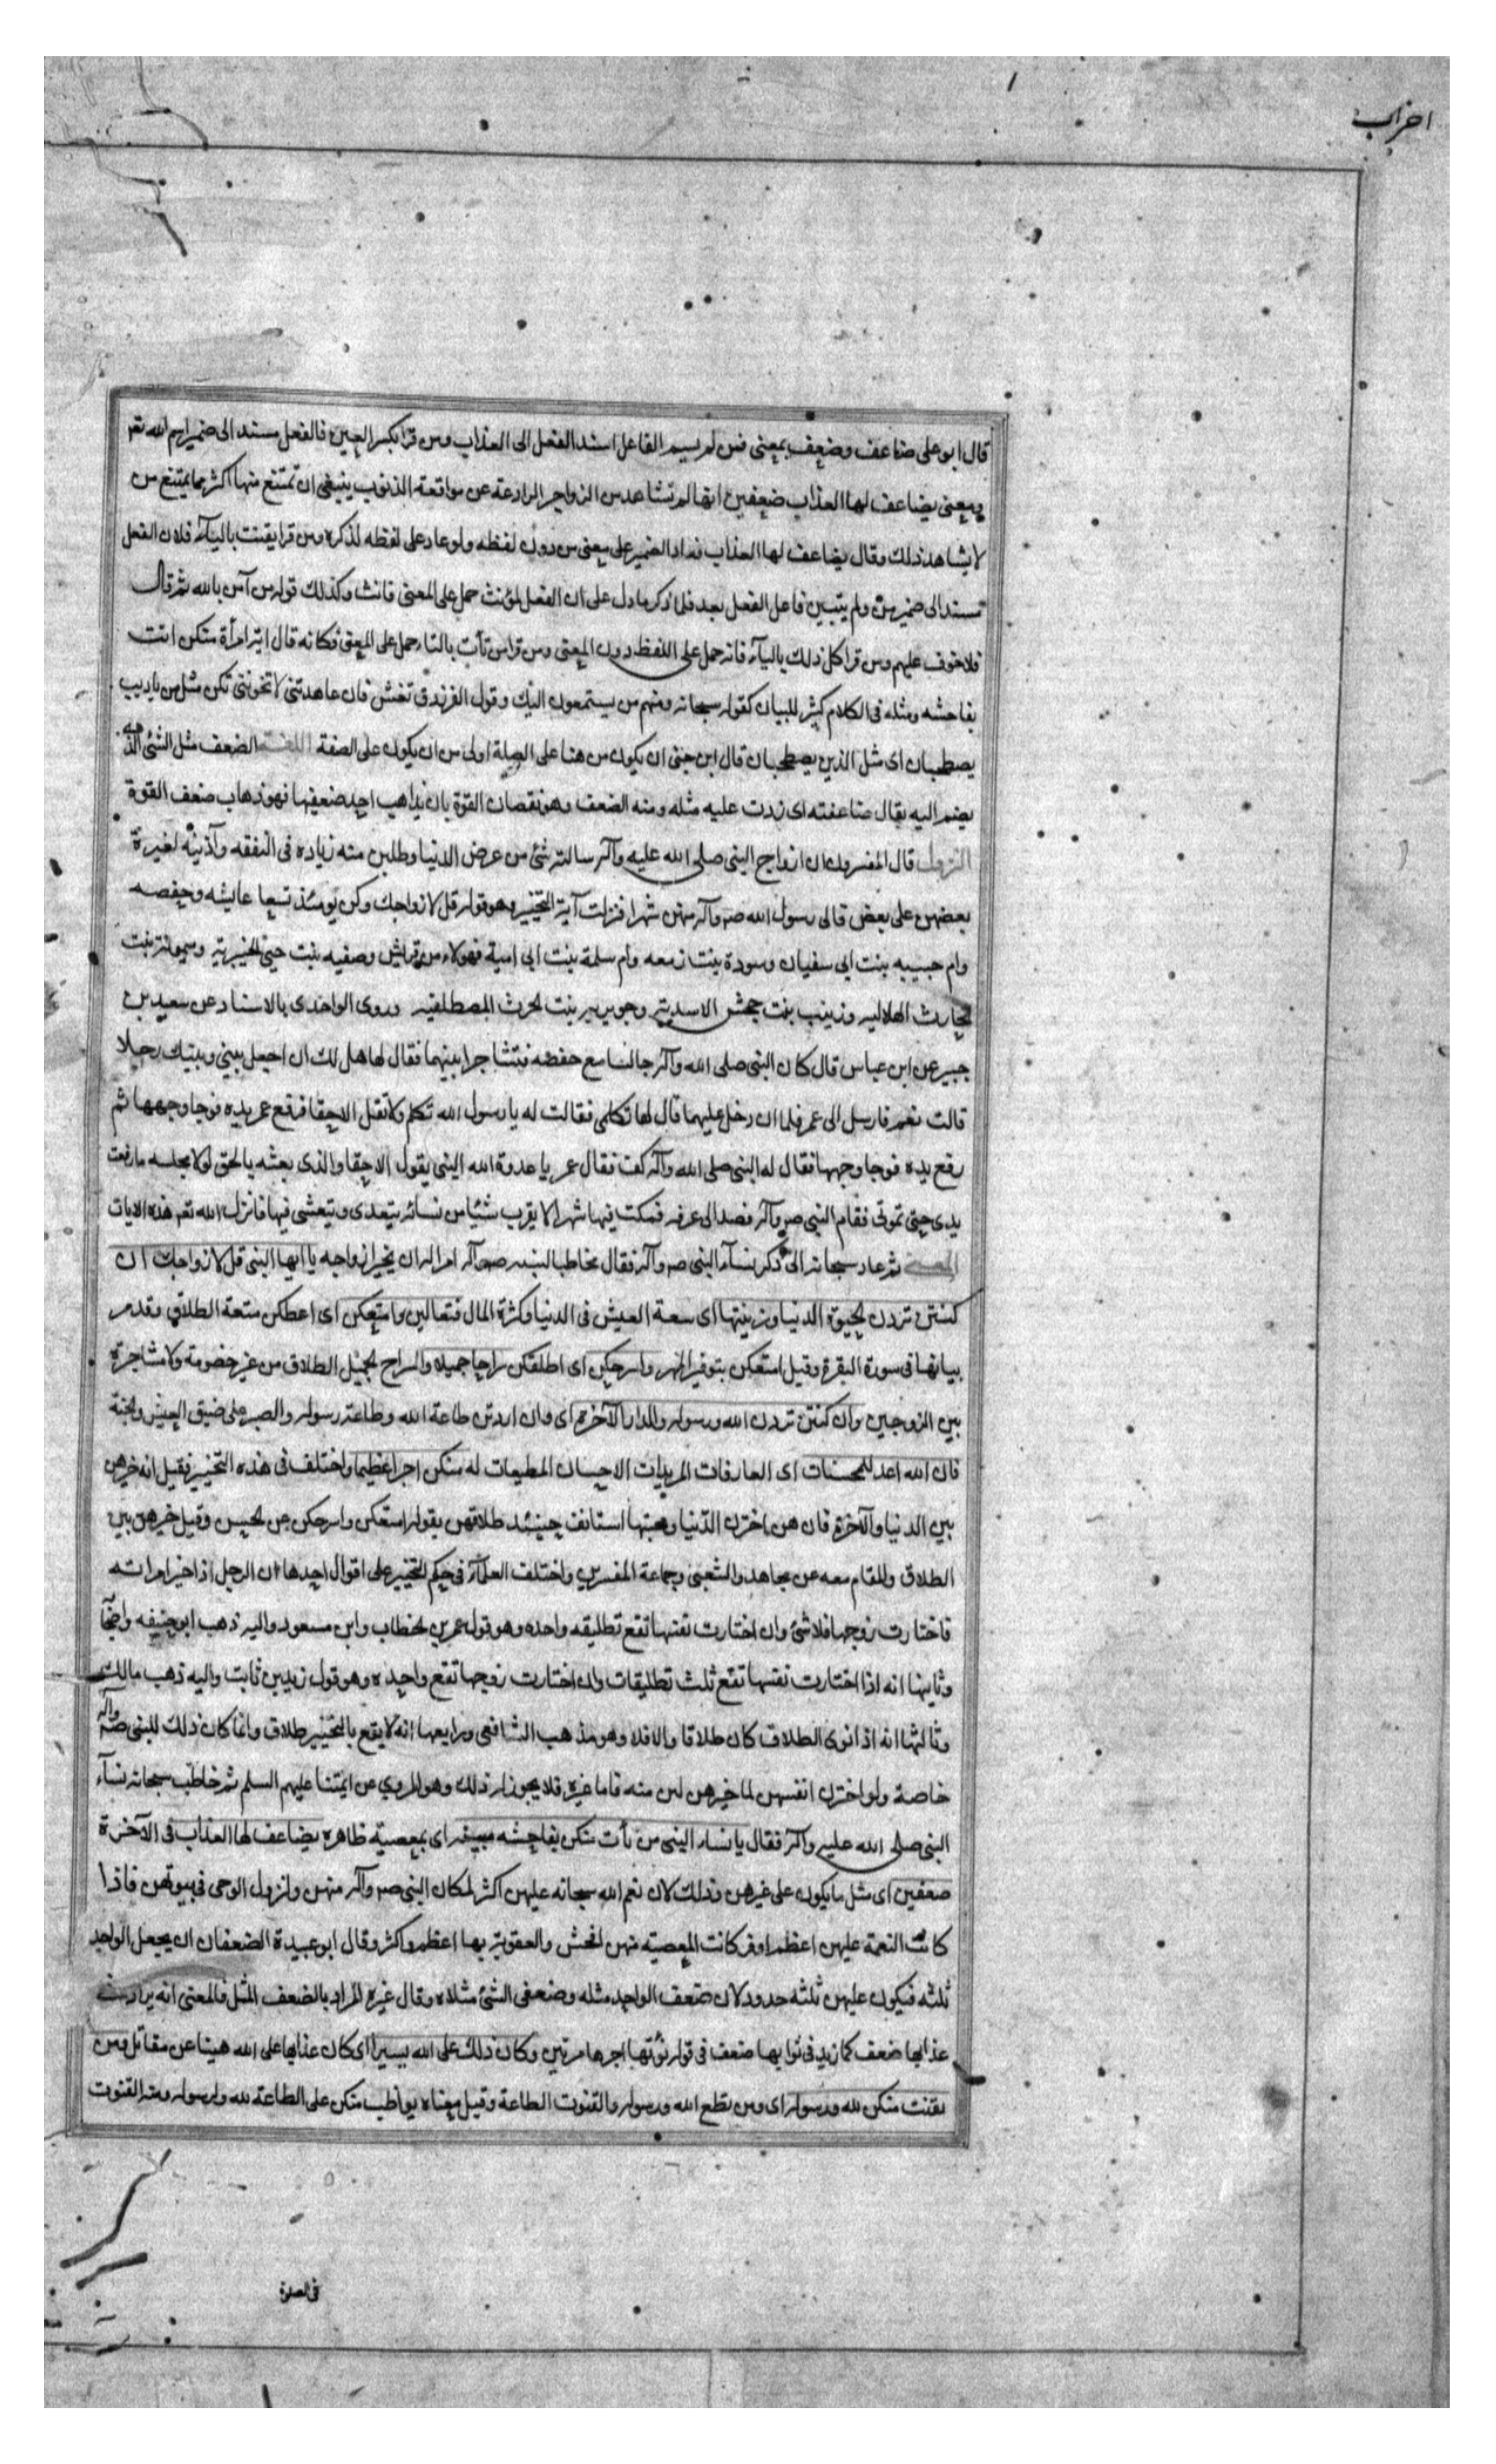 احزاب
قال ابو على ضاعف وضعف بمعنى فمن لم يسم الفاعل اسند الفعل الى العذاب ومن قرا بكسر العين فالفعل مسند الى ضمير اسم الله تعـ
ومعنى يضاعف لها العذاب ضعفين انها لم تشاهد من الزواجر الرادعة عن مواقعة الذنوب ينبغى ان تمتنع منها اكثر مما يمتنع من
لا يشاهد ذلك وقال يضاعف لها العذاب فعاد الضمير على معنى من دون لفظه ولو عاد على لفظه لذكره ومن قرا يقنت بالياء فلان الفعل
مسند الى ضمير من ولم يتبين فاعل الفعل بعد فلما ذكر ما دل على ان الفعل لمؤنث حمل على المعنى فانث وكذلك قوله من آمن بالله ثم قال
فلا خوف عليهم ومن قرا كل ذلك بالياء فانه حمل على اللفظ دون المعنى ومن قرا من تأت بالتاء حمل على المعنى فكانه قال اية امرأة منكن اتت
بفاحشه ومثله فى الكلام كثير للبيان كقوله سبحانه ومنهم من يستمعون اليك وقول الفرزدق تعش فان عاهدتنى لا تخوننى نكن مثل من يا ذيب
يصطحبان اى مثل الذين يصطحبان قال ابن جنى ان يكون من هنا على الصلة اولى من ان يكون على الصفة اللغـة الضعف مثل الشئ الذى
يضم اليه يقال ضاعفته اى زدت عليه مثله ومنه الضعف وهو نقصان القوة بان يذهب احد ضعفيها فهو ذهاب ضعف القوة
النزول قال المفسرون ان ازواج النبى صلى الله عليه وآله سالنه شئ من عرض الدنيا وطلبن منه زياده فى النفقه وآذينه لغيرة
بعضهن على بعض فالى رسول الله صـ وآله منهن شهرا فنزلت آية التخيير وهو قوله قل لازواجك وكن يومئذ تسعا عايشه وحفصه
وام حبيبه بنت ابى سفيان وسودة بنت زمعه وام سلمة بنت ابى امية فهولاء من قريش وصفيه بنت حيى الخيبريه وميمونة بنت
الحارث الهلاليه وزينب بنت جحش الاسديه وجويريه بنت الحرث المصطلقيه وروى الواحدى بالاسناد عن سعيد بن
جبير عن ابن عباس قال كان النبى صلى الله وآله جالسا مع حفصه فتشاجرا بينهما فقال لها هل لك ان اجعل بينى وبينك رجلا
قالت نعم فارسل الى عمر فلما ان دخل عليهما قال لها تكلمى فقالت له يا رسول الله تكلم ولا تقل الا حقا فرفع عمر يده فوجا وجهها ثم
رفع يده فوجا وجهها فقال له النبى صلى الله وآله كف فقال عمر يا عدوة الله النبى يقول الا حقا والذى بعثه بالحق لولا مجلسه ما رفعت
يدى حتى تموتى فقام النبى صـ وآله فصعد الى غرفه فمكث فيها شهرا لا يقرب شئيا من نسائه يتغدى ويتعشى فيها فانزل الله تعـ هذه الايات
المعنـى ثم عاد سبحانه الى ذكر نساء النبى صـ وآله فقال مخاطبا لنبيه صـ وآله امرا له ان يخير ازواجه يا ايها النبى قل لازواجك ان
كنتن تردن الحيوة الدنيا وزينتها اى سعة العيش فى الدنيا وكثرة المال فتعالين وامتعكن اى اعطكن متعة الطلاق وقد مر
بيانها فى سورة البقرة وقيل امتعكن بتوفير المهر واسرحكن اى اطلقكن سراحا جميلا والسراح الجميل الطلاق من غير خصومة ولا مشاجرة
بين الزوجين وان كنتن تردن الله ورسوله والدار الآخرة اى وان اردتن طاعة الله وطاعة رسوله والصبر على ضيق العيش والجنة
فان الله اعد للمحسنات اى العارفات المريدات الاحسان المطيعات له منكن اجرا عظيما واختلف فى هذه التخيير فقيل انه خيرهن
بين الدنيا والآخرة فان هن اخترن الدنيا ومحبتها استانف حينئذ طلاقهن بقوله امتعكن واسرحكن عن الحسن وقيل خيرهن بين
الطلاق والمقام معه عن مجاهد والشعبى وجماعة المفسرين واختلف العلماء فى حكم التخيير على اقوال احدها ان الرجل اذا خير امراته
فاختارت زوجها فلا شئ وان اختارت نفسها تقع تطليقه واحده وهو قول عمر بن الخطاب وابن مسعود واليه ذهب ابو حنيفه واصحا
وثانيها انه اذا اختارت نفسها تقع ثلث تطليقات وان اختارت زوجها تقع واحده وهو قول زيد بن ثابت واليه ذهب مالك
وثالثها انه اذا نوى الطلاق كان طلاقا والا فلا وهو مذهب الشافعى ورابعها انه لا يقع بالتخيير طلاق وانما كان ذلك للنبى صـ وآله
خاصة ولو اخترن انفسهن لما خيرهن لبن منه فاما غيره فلا يجوز له ذلك وهو المروى عن ايمتنا عليهم السلم ثم خاطب سبحانه نساء
النبى صلى الله عليه وآله فقال يا نساء النبى من تأت منكن بفاحشه مبينه اى بمعصية ظاهره يضاعف لها العذاب فى الآخرة
ضعفين اى مثل ما يكون على غيرهن وذلك لان نعم الله سبحانه عليهن اكثر لمكان النبى صـ وآله منهن ولنزول الوحى فى بيوتهن فاذا
كانت النعمة عليهن اعظم اوفر كانت المعصيه منهن افحش والعقوبة بها اعظم واكثر وقال ابو عبيدة الضعفان ان يجعل الواحد
ثلثه فيكون عليهن ثلثه حدود لان ضعف الواحد مثله وضعفى الشئ مثلاه وقال غيره المراد بالضعف المثل فالمعنى انه يزاد فى
عذابها ضعف كما زيد فى ثوابها ضعف فى قوله نؤتها اجرها مرتين وكان ذلك على الله يسيرا اى كان عذابها على الله هينا عن مقاتل ومن
يقنت منكن لله ورسوله اى ومن يطع الله ورسوله والقنوت الطاعة وقيل معناه يواظب منكن على الطاعة لله ولرسوله ومنه القنوت
فى الصلوة